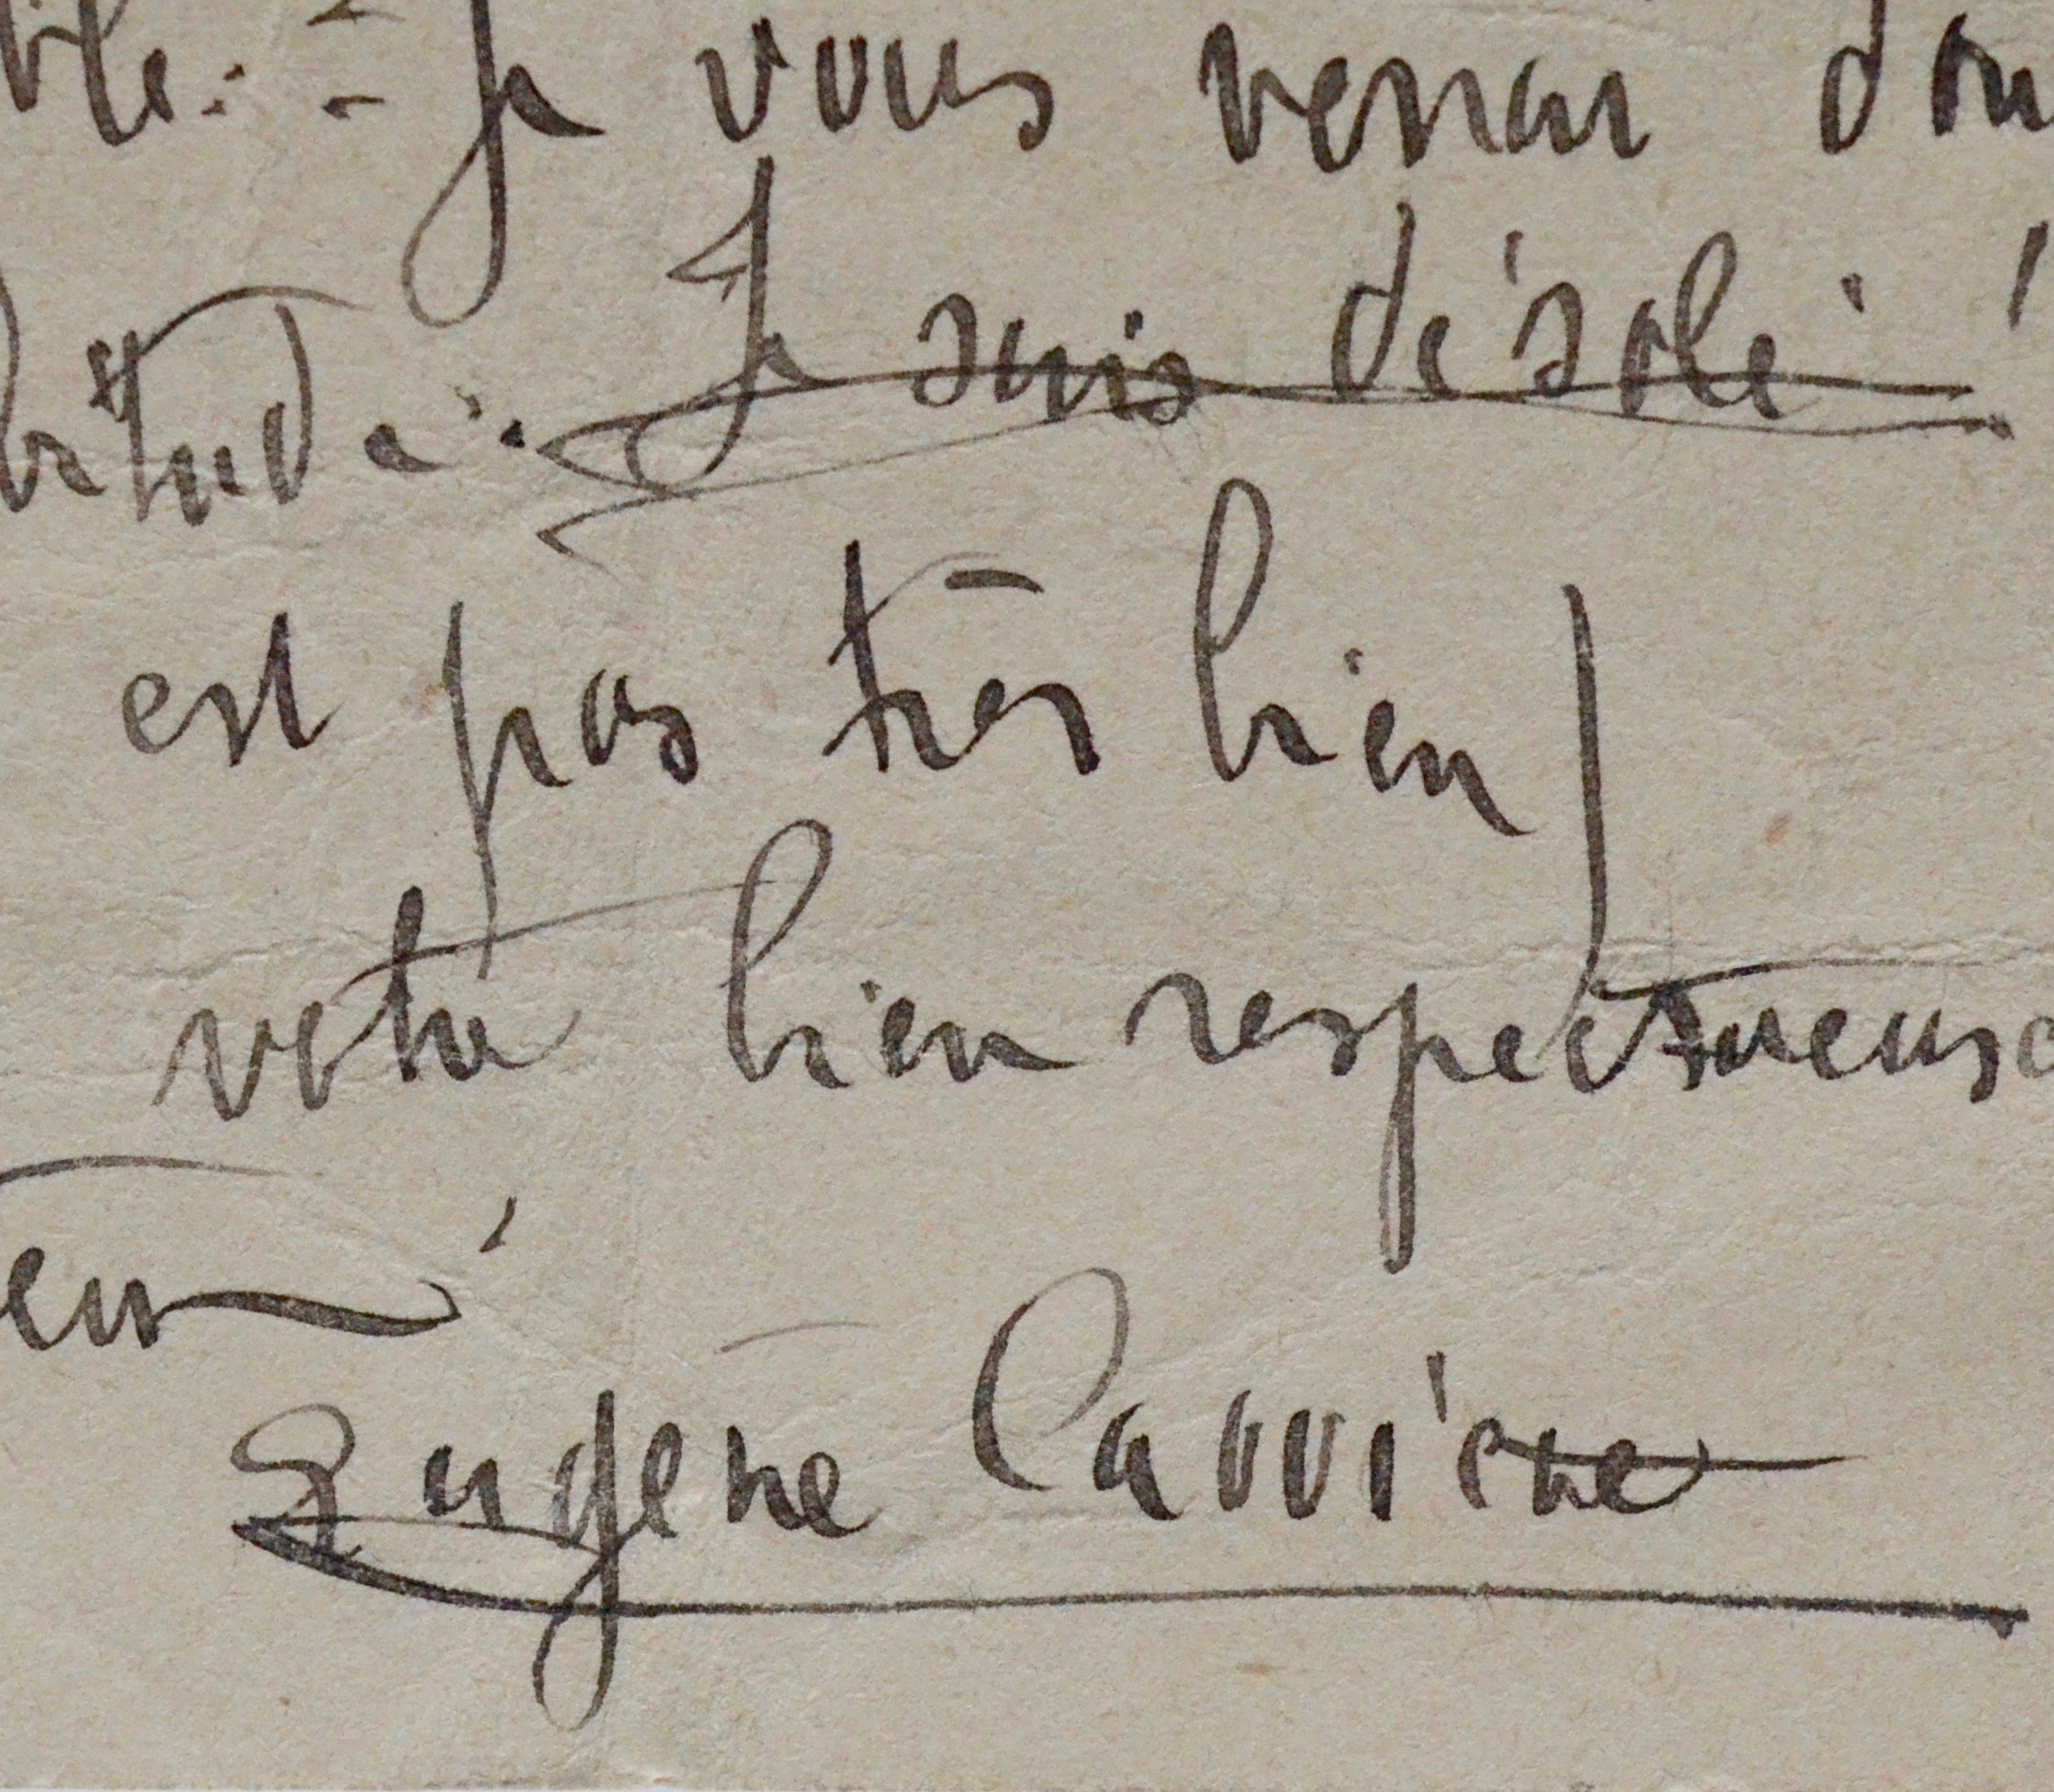 Je vous verrai don
Je suis désolé
est pas très bien
votre bien respectueuse
Eugène Carrière